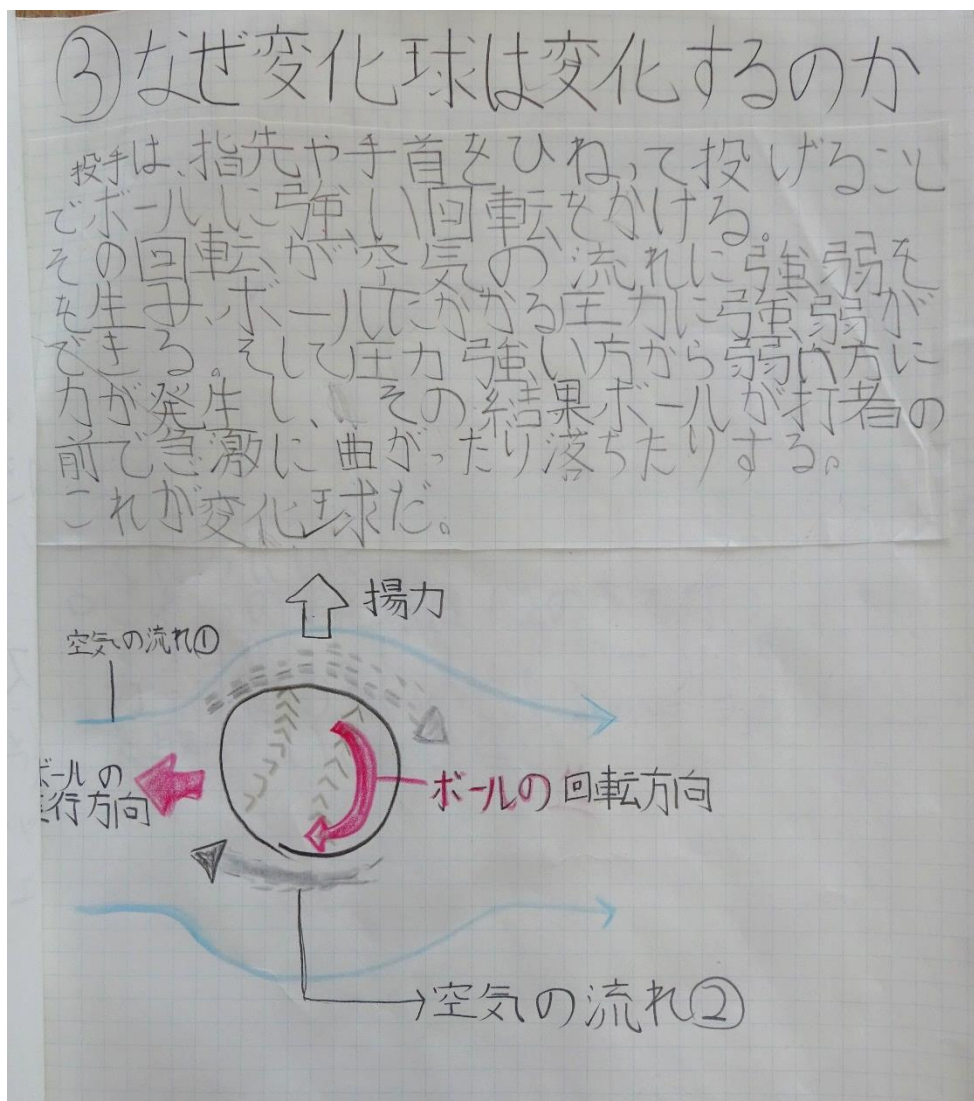 ③なぜ変化球は変化するのか
投手は、指先や手首をひねって投げること
でボールに強い回転をかける。
その回転が空気の流れに強弱を
を生み、ボールにかかる圧力に強弱が
できる。そして圧力強い方から弱い方に
力が発生し、その結果ボールが打者の
前で急激に曲がったり落ちたりする。
これが変化球だ。
揚力
空気の流れ①
ボールの
進行方向
ボールの回転方向
空気の流れ②